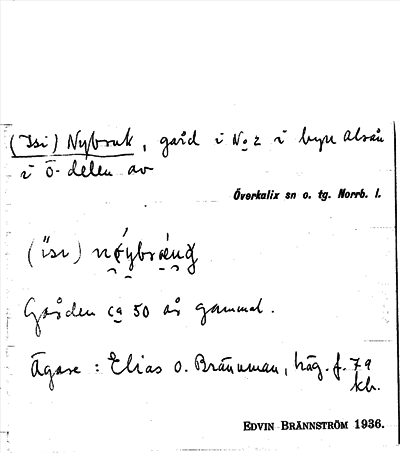 (Isi) Nybruk, gård i No 2 i byn Alsån
i Ö. delen av
Överkalix sn o. tg. Norrb. l.
(ìsı)
Gården ca 50 år gammal.
Ägare: Elias o. Brännman, häg. f. 79
kh.
EDVIN BRÄNNSTRÖM 1936.